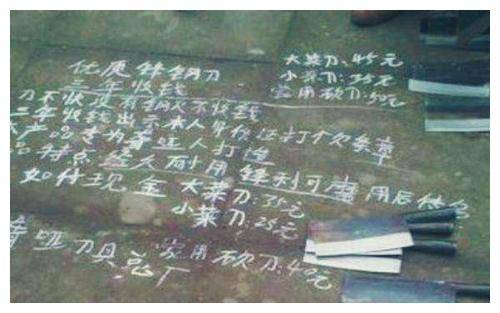 优质锋钢刀
三年收钱
大菜刀:45元
小菜刀:35元
家用砍刀:50元
刀不快没有钢火不收钱
三年收钱出示本人身份证打欠条章
产品专为聋哑人打造
品特点 经久耐用 锋利可磨 用后付
如付现金 大菜刀:35元
小菜刀:25元
家用砍刀:40元
聋哑刀具总厂